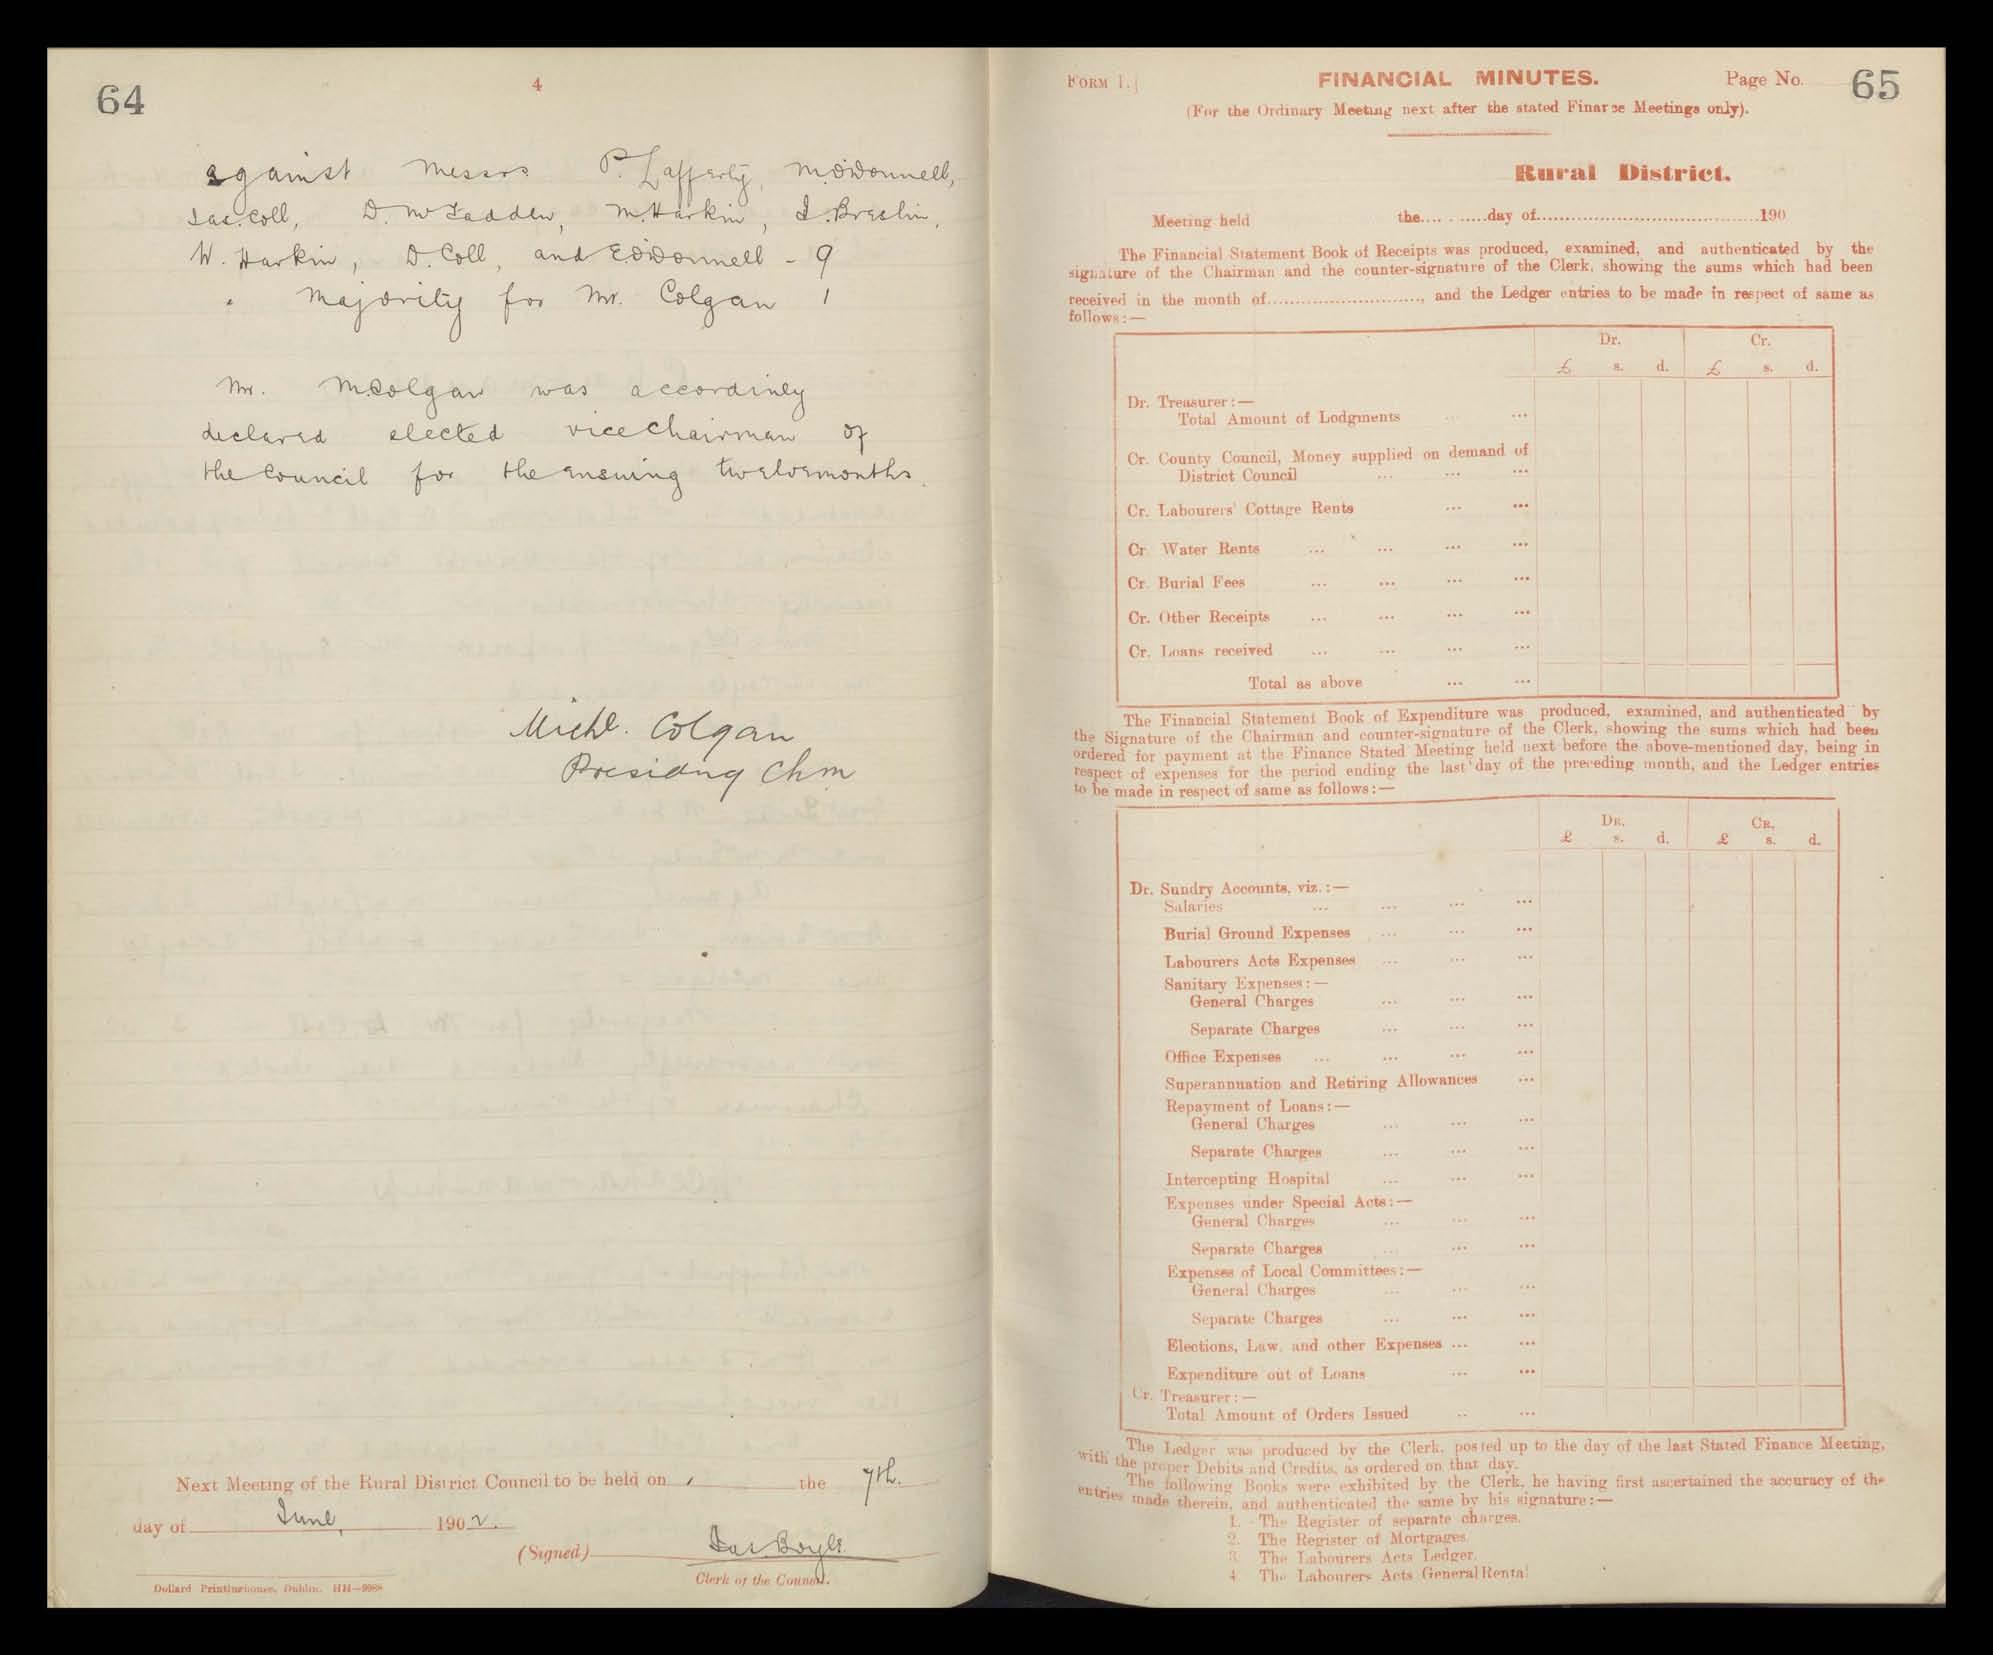 64
4
against Messrs P. Lafferty, M. O'Donnell,
Jas. Coll, D. McFadden, M. Harkin, J. Breslin,
W. Harkin, D. Coll, and E. O'Donnell - 9
majority for Mr. Colgan 1
Mr. M. Colgan was accordinly
declared elected vice chairman of
the Council for the ensuing twelvemonths.
Michl. Colgan
Presiding Chm
Next Meeting of the Rural District Council to be held on the 7th.
day of June, 1902.
(Signed) Jas. Boyle
Clerk of the Council.
Dollard Printinghouse, Dublin. HH—9988
FORM 1.]
FINANCIAL MINUTES.
Page No. 65
(For the Ordinary Meeting next after the stated Finance Meetings only).
Rural District.
Meeting held the............day of..........................................190
The Financial Statement Book of Receipts was produced, examined, and authenticated by the
signature of the Chairman and the counter-signature of the Clerk, showing the sums which had been
received in the month of............................, and the Ledger entries to be made in respect of same as
follows:—
Dr. Cr.
£ s. d. £ s. d.
Dr. Treasurer:—
Total Amount of Lodgments ... ...
Cr. County Council, Money supplied on demand of
District Council ... ... ...
Cr. Labourers' Cottage Rents ... ...
Cr. Water Rents ... ... ... ...
Cr. Burial Fees ... ... ... ...
Cr. Other Receipts ... ... ... ...
Cr. Loans received ... ... ... ...
Total as above ... ...
The Financial Statement Book of Expenditure was produced, examined, and authenticated by
the Signature of the Chairman and counter-signature of the Clerk, showing the sums which had been
ordered for payment at the Finance Stated Meeting held next before the above-mentioned day, being in
respect of expenses for the period ending the last day of the preceding month, and the Ledger entries
to be made in respect of same as follows:—
DR. CR.
£ s. d. £ s. d.
Dr. Sundry Accounts, viz.:—
Salaries ... ... ... ...
Burial Ground Expenses ... ... ...
Labourers Acts Expenses ... ... ...
Sanitary Expenses:—
General Charges ... ... ...
Separate Charges ... ... ...
Office Expenses ... ... ... ...
Superannuation and Retiring Allowances ...
Repayment of Loans:—
General Charges ... ... ...
Separate Charges ... ... ...
Intercepting Hospital ... ... ...
Expenses under Special Acts:—
General Charges ... ... ...
Separate Charges ... ... ...
Expenses of Local Committees:—
General Charges ... ... ...
Separate Charges ... ... ...
Elections, Law, and other Expenses ... ...
Expenditure out of Loans ... ...
Cr. Treasurer:—
Total Amount of Orders Issued .. ...
The Ledger was produced by the Clerk, posted up to the day of the last Stated Finance Meeting,
with the proper Debits and Credits, as ordered on that day.
The following Books were exhibited by the Clerk, he having first ascertained the accuracy of the
entries made therein, and authenticated the same by his signature:—
1. The Register of separate charges.
2. The Register of Mortgages.
3. The Labourers Acts Ledger.
4. The Labourers Acts General Rental